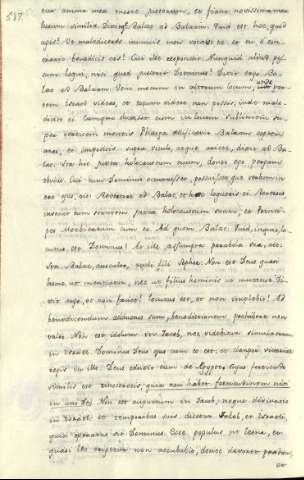 537.
mea morte justorum, et fiant novissima mea
horum similia. Dixitque Balac ad Balaam: Quid est hoc, quod
agis? Ut malediceres inimicis meis vocavi te: et tu e con-
trario benedicis eis! Cui ille respondit: Numquid aliud pos-
sum loqui, nisi quod jusserit Dominus? Dixit ergo Ba-
lac ad Balaam: Veni mecum in alterum locum, unde
videas, et totum videre non possis, inde male-
dicito ei. Cumque duxisset eum in locum sublimem su-
per verticem montis Phasga aedificavit Balaam septem
aras, et impositis supra vitulo, atque ariete, dixit ad Ba-
lac: Sta hic juxta holocaustum tuum, donec ego pergam
obvius. Cui cum Dominus occurrisset, posuissetque verbum in
ore ejus, ait: Revertere ad Balac, et haec loqueris ei. Reversus
invenit eum stantem juxta holocaustum suum, et princi-
pes Moabitarum cum eo. Ad quem Balac: Quid, inquit, lo-
cutus est Dominus? At ille assumpta parabola sua, ait:
Sta Balac, ausculta, audi fili Sephor. Non est Deus quasi
homo, ut mentiatur, nec ut filius hominis ut mutetur. Di-
xit ergo, et non faciet? locutus est, et non implebit? Ad
benedicendum adductus sum, benedictionem prohibere non
valeo. Non est idolum in Jacob, nec videtur simulacrum
in Israel. Dominus Deus ejus cum eo est, et clangor victoriae
regis in illo. Deus eduxit eum de Aegypto, cujus fortitudo
similis est rhinocerotis,
Non est augurium in Jacob, neque divinatio
in Israel. temporibus suis dicetur Jacob, et Israeli,
quid operatus sit Dominus. Ecce populus ut leaena, et
quasi leo erigetur: non accubabit, donec devoret praedam,